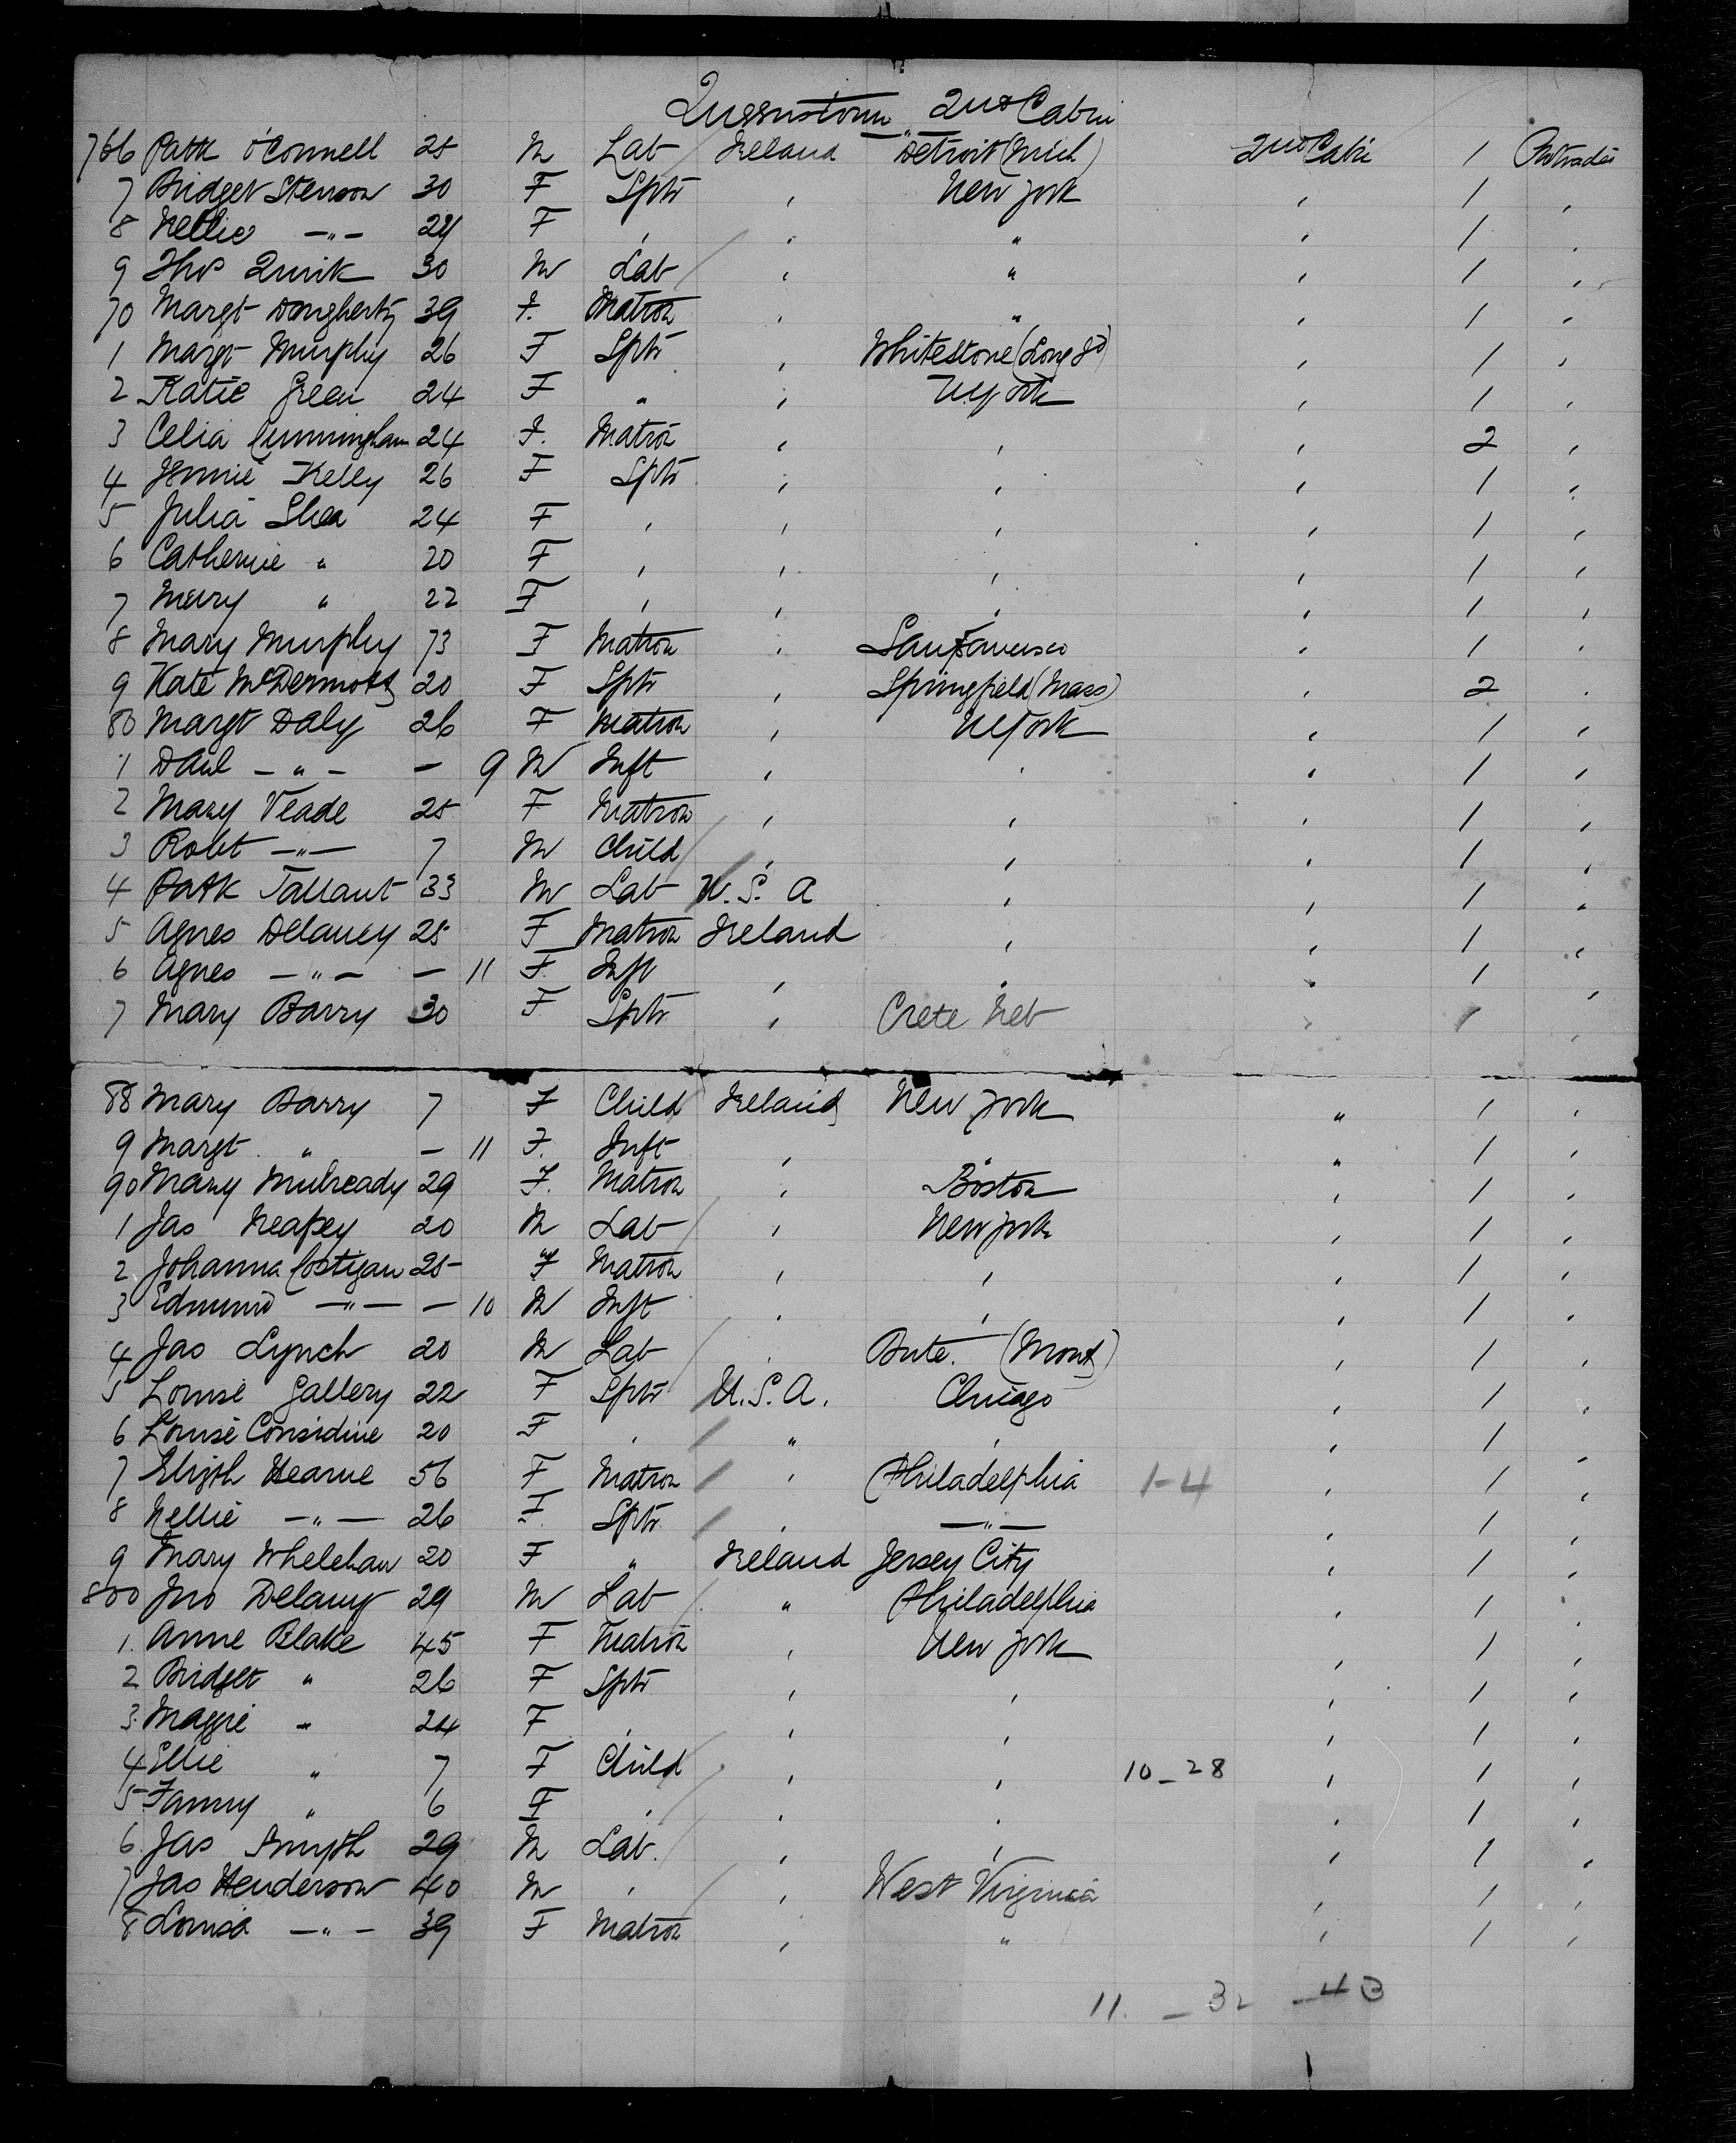 Queenstown 2nd Cabin
766 Patk O'Connell 25 M Lab Ireland Detroit (Mich) 2nd Cabin 1
7 Bridget Stenson 30 F Sptr , New York , 1 ,
8 Nellie —"— 24 F , , " , 1 ,
9 Thos Quirk 30 M Lab , " , 1 ,
70 Margt Dougherty 39 F. Matron , " , 1 ,
1 Margt Murphy 26 F Sptr , Whitestone (Long Id) , 1 ,
2 Katie Green 24 F " , N York , 1 ,
3 Celia Cunningham 24 F. Matron , , , 2 ,
4 Jennie Kelly 26 F Sptr , , , 1 ,
5 Julia Shea 24 F , , , , 1 ,
6 Catherine " 20 F , , , , 1 ,
7 Mary " 22 F , , , , 1 ,
8 Mary Murphy 73 F Matron , San Francisco , 1 ,
9 Kate McDermott 20 F Sptr , Springfield (Mass) , 2 ,
80 Margt Daly 26 F Matron , N York , 1 ,
1 Danl — " — — 9 M Inft , , , 1 ,
2 Mary Veade 25 F Matron , , , 1 ,
3 Robt —"— 7 M Child , , , 1 ,
4 Patk Tallant 33 M Lab U.S. A , , 1 ,
5 Agnes Delaney 25 F Matron Ireland , , 1 ,
6 Agnes — " — — 11 F. Inft , , , 1 ,
7 Mary Barry 30 F Sptr , Crete Neb , 1 ,
88 Mary Barry 7 F Child Ireland New York " 1 ,
9 Margt " — 11 F. Inft , " " 1 ,
90 Mary Mulready 29 F. Matron , Boston , 1 ,
1 Jas Heapey 20 M Lab , New York , 1 ,
2 Johanna Costigan 25 F Matron , , , 1 ,
3 Edmund —"— — 10 M Inft , , , 1 ,
4 Jas Lynch 20 M Lab , Bute. (Mont) , 1 ,
5 Louise Gallery 22 F Sptr U.S.A. Chicago , 1 ,
6 Louise Considine 20 F , " , , 1
7 Elizth Hearne 56 F Matron , Philadelphia 1-4 , 1 ,
8 Nellie —"— 26 F. Sptr , —"— , 1 ,
9 Mary Whelehan 20 F " Ireland Jersey City , 1 ,
800 Jno Delany 29 M Lab " Philadelphia , 1 ,
1. Anne Blake 45 F Matron , New York , 1 ,
2 Bridget " 26 F Sptr , , , 1 ,
3. Maggie " 24 F , , , , 1 ,
4 Ellie " 7 F Child , , 10-28 , 1 ,
5 Fanny " 6 F , , , , 1 ,
6. Jas Smyth 29 M Lab. , , , 1 ,
7 Jas Henderson 40 M , , West Virginia , 1 ,
8 Louisa —"— 39 F Matron , " , 1 ,
11. — 32 — 43